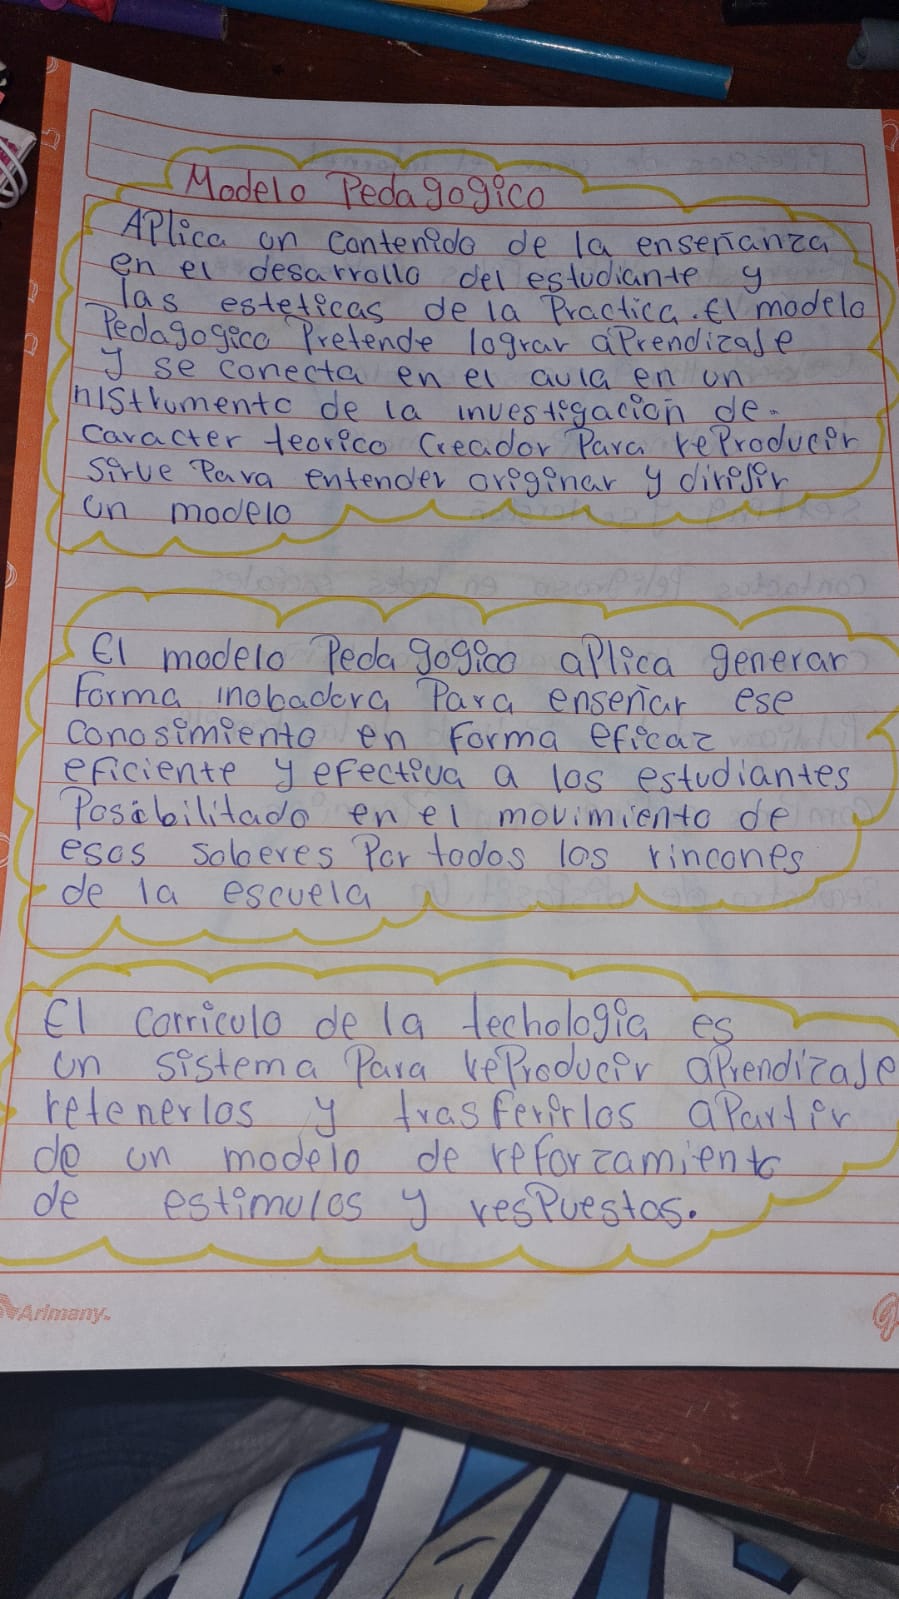 Modelo Pedagogico
Aplica un contenido de la enseñanza
en el desarrollo del estudiante y
las esteticas de la Practica. El modelo
Pedagogico Pretende lograr aprendizaje
y se conecta en el aula en un
nistrumento de la investigación de.
caracter teorico Creador Para reproducir
sirve Para entender originar y dirijir
un modelo
El modelo Pedagogico aplica generar
Forma inobadora Para enseñar ese
conosimiento en Forma eficaz
eficiente y efectiva a los estudiantes
Posibilitado en el movimiento de
esos saberes Por todos los rincones
de la escuela
El corriculo de la techologia es
un sistema Para reproducir aprendizaje
retenerlos y trasferirlos apartir
de un modelo de reforzamiento
de estimulos y respuestas.
Arimany